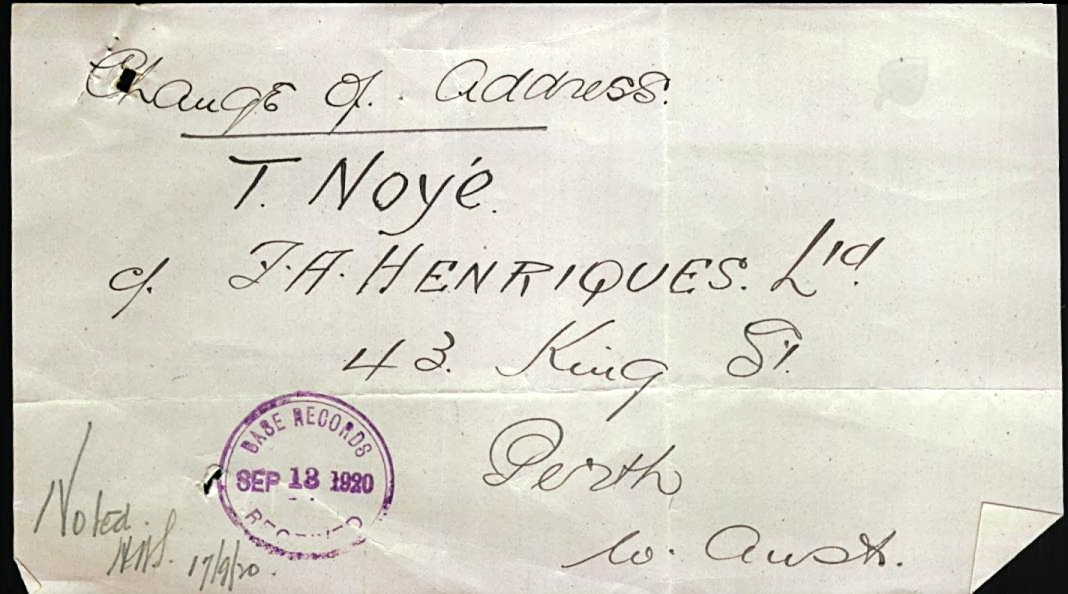 Change of. Address.
T. Noyé.
c/. F.A. HENRIQUES. Ltd.
43. King St.
Perth
W. Aust.
BASE RECORDS
SEP 13 1920
RECEIVED
Noted.
17/9/20.